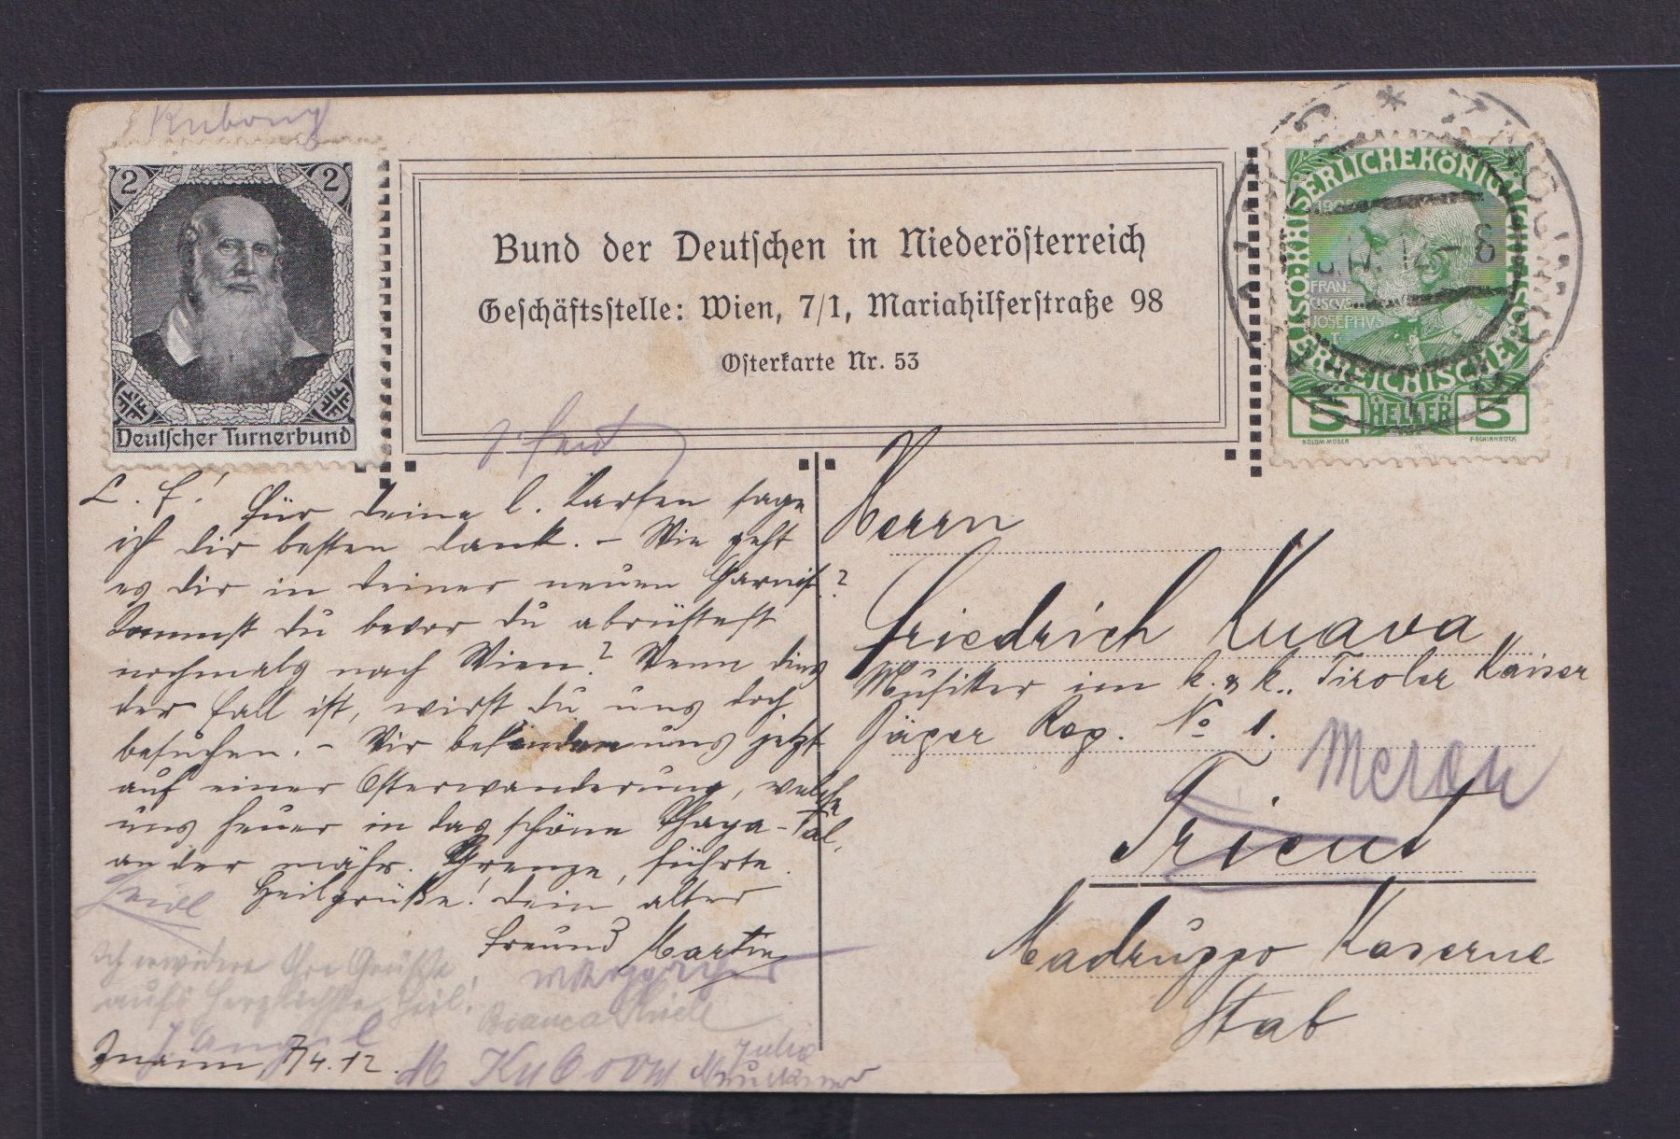 Kubony
2 2
Deutscher Turnerbund
Bund der Deutschen in Niederösterreich
Geschäftsstelle: Wien, 7/1, Mariahilferstraße 98
Osterkarte Nr. 53
KAISERLICHE KÖNIGLICHE
ÖSTERREICHISCHE
1908
FRAN
CISCVS
JOSEPHVS
5 HELLER 5
L. F.! Für deine l. Karten sage
ich dir besten Dank. – Wie geht
es dir in deiner neuen Garnis.?
Kommst du bevor du abrüstest
nochmals nach Wien? Wenn dies
der Fall ist, wirst du uns doch
besuchen. – Wir befinden uns jetzt
auf einer Osterwanderung, welche
uns heuer in das schöne Thaya-Tal,
an der mähr. Grenze, führte.
Heilgrüße! dein alter
Freund Martin
Ich erwidere Ihre Grüße
aufs herzlichste Heil!
Bianca Thiele
Znaim, 7/4.12.
M Kubony
Julie
Herrn
Friedrich Kuava
Musiker im k. & k. Tiroler Kaiser
Jäger Reg. No 1.
Meran
Trient
Madruzzo Kaserne
Stab